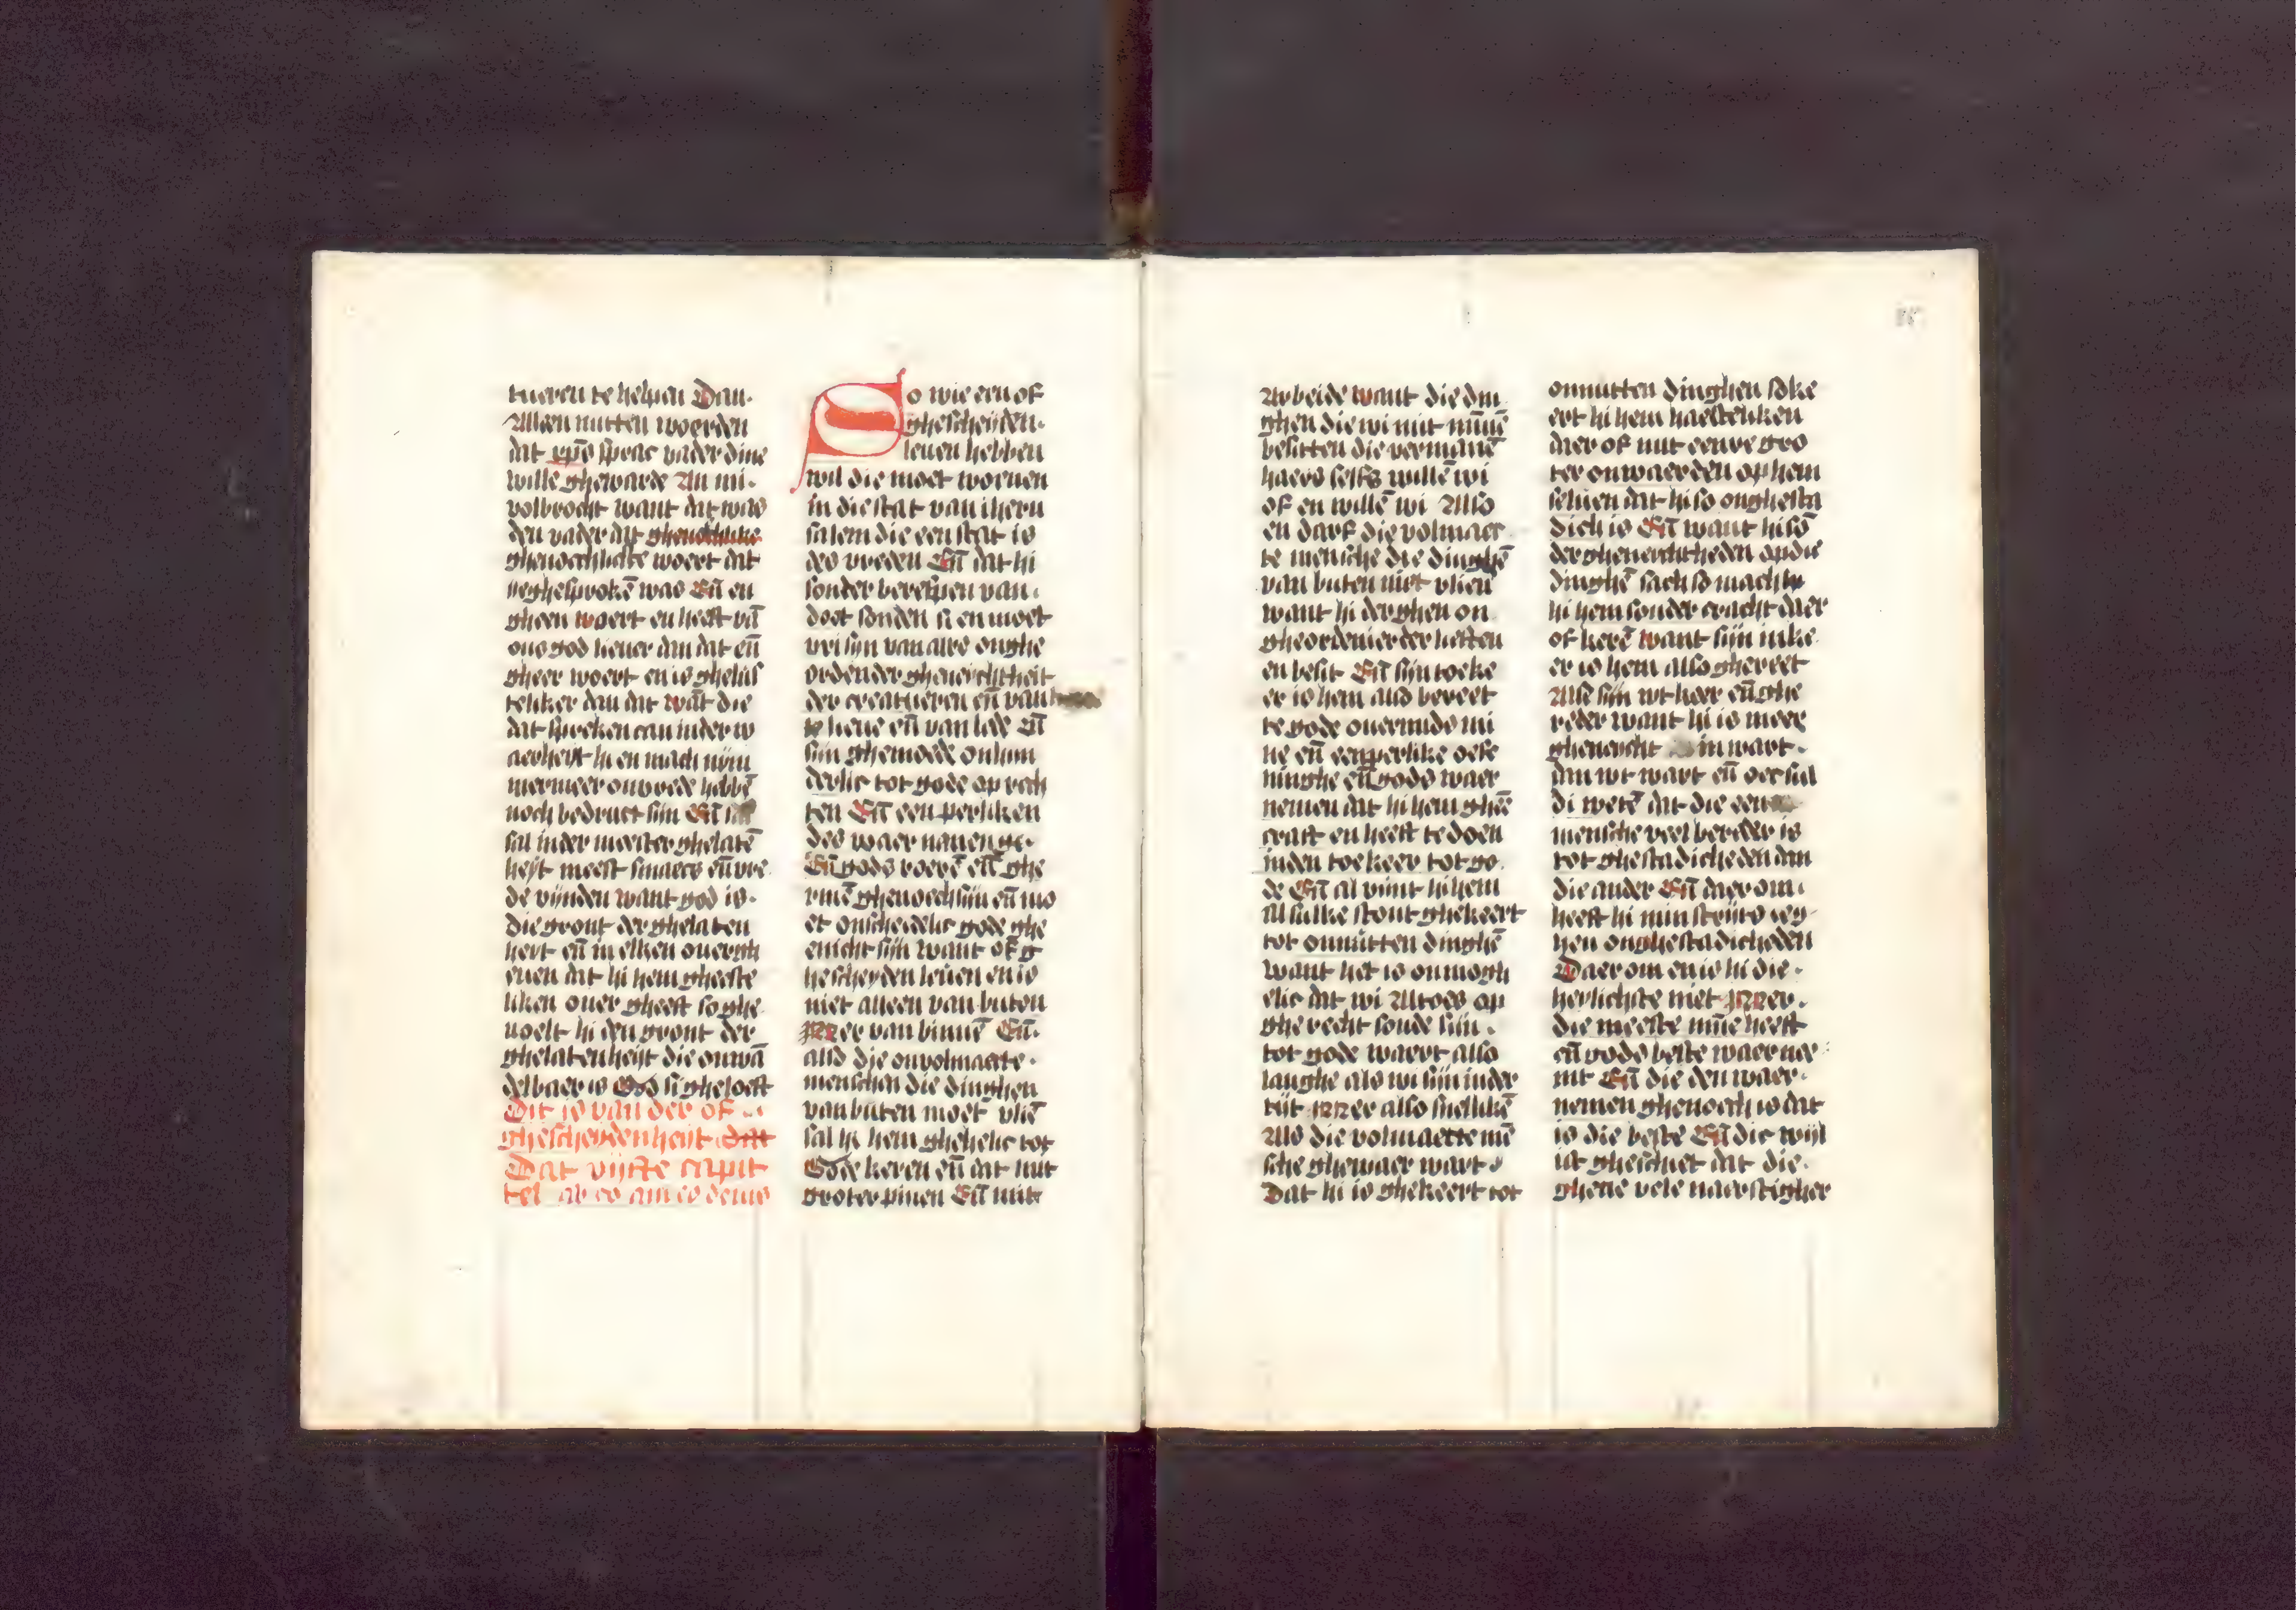 tueren te helpen Dan.
Allen nutten woerden
dat xpūs sprac vader dine
wille ghewarde An mi.
volbrocht want dat was
den vader dat
ghenoechlicste woert dat
ye ghesprokē was Eñ en
gheen woert en heeft vā
ons god liever dan dat eñ
gheer woert en is ghelus
teliker dan dat wāt die
dat spreken can in der w
aerheyt hi en mach nym
mermeer onvrede hebbē
noch bedruct sijn Eñ
sal in der meester ghelatē
heyt meest smaecs eñ vre
de vijnden want god is.
die gront der ghelaten
heyt eñ in elken ouergh
even dat hi hem gheeste
liken over gheeft so ghe
voelt hi den gront der
ghelatenheyt die onwā
delbaer is God si gheloeft
Dit is van der of
ghescheydenheyt dat
Dat vijfte capit
tel
So wie een of
ghescheyden.
leuen hebben
wil die moet wornen
in die stat van iheru
salem die een stat is
des vreden Eñ dat hi
sonder berespen van.
doet sonden si en moet
vri sijn van alre onghe
ordender gheneychtheit
der creatueren eñ van
lieue eñ van lede Eñ
sijn ghemoede onhin
derlic tot gode op rech
ten Eñ een perliken
des waer nemen ge.
Eñ gods roerē eñ ghe
rinē ghenoech sijn eñ mo
et onscheidelic gode ghe
enicht sijn want of g
hescheyden leuen en is
niet alleen van buten
Mer van binnē Eñ.
also die onvolmaecte.
menschen die dinghen
van buten moet vliē
sal hi hem ghehelic tot
Gode keren eñ dat mit
groter pinen Eñ mit
Arbeide want die din
ghen die wi mit mīnē
besitten die vermanē
haers selfs willē wi
of en willē wi Also
en darf die volmaec
te mensche die dinghē
van buten niet vlien
want hi der ghen on
gheordenierder liesten
en besit Eñ sijn toeke
er is hem also bereet
te gode ouermids mi
ne eñ eenperlike oefe
ninghe eñ gods waer
nemen dat hi hem ghee
craft en heeft te doen
in den toe keer tot go
de Eñ al vijnt hi hem
al sulke stont ghekeert
tot onnutten dinghē
want het is onmogh
elic dat wi Altoes op
gherecht sonde sijn.
tot gode waert also
langhe als wi sijn in der
tijt Mer also snellikē
Als die volmaecte mē
sche ghewaer wart
Dat hi is ghekeert tot
onnutten dinghen soke
ert hi hem haesteliken
daer of mit eenre gro
ter onwaerden op hem
selven dat hi so onghesta
dich is Eñ want hi sō
der gheneychtheden op die
dinghē sach so mach
hi hem sonder cracht daer
of kerē want sijn inke
er is hem also ghereet
Als sijn wtkeer eñ ghe
reder want hi is meer
gheneycht in wart.
dan wt wart eñ oec sul
di wetē dat die een
mensche veel bereder is
tot ghestadicheden dan
die ander Eñ daer om.
heeft hi min strijts teg
hen onghestadicheden
Daer om en is hi die.
heylichste niet Mer.
die meeste mīne heeft
eñ gods beste waer nee
mt Eñ die den waer.
nemen ghenoech is dat
is die beste Eñ dic wijl
ist ghesciet dat die.
ghene vele naerstigher